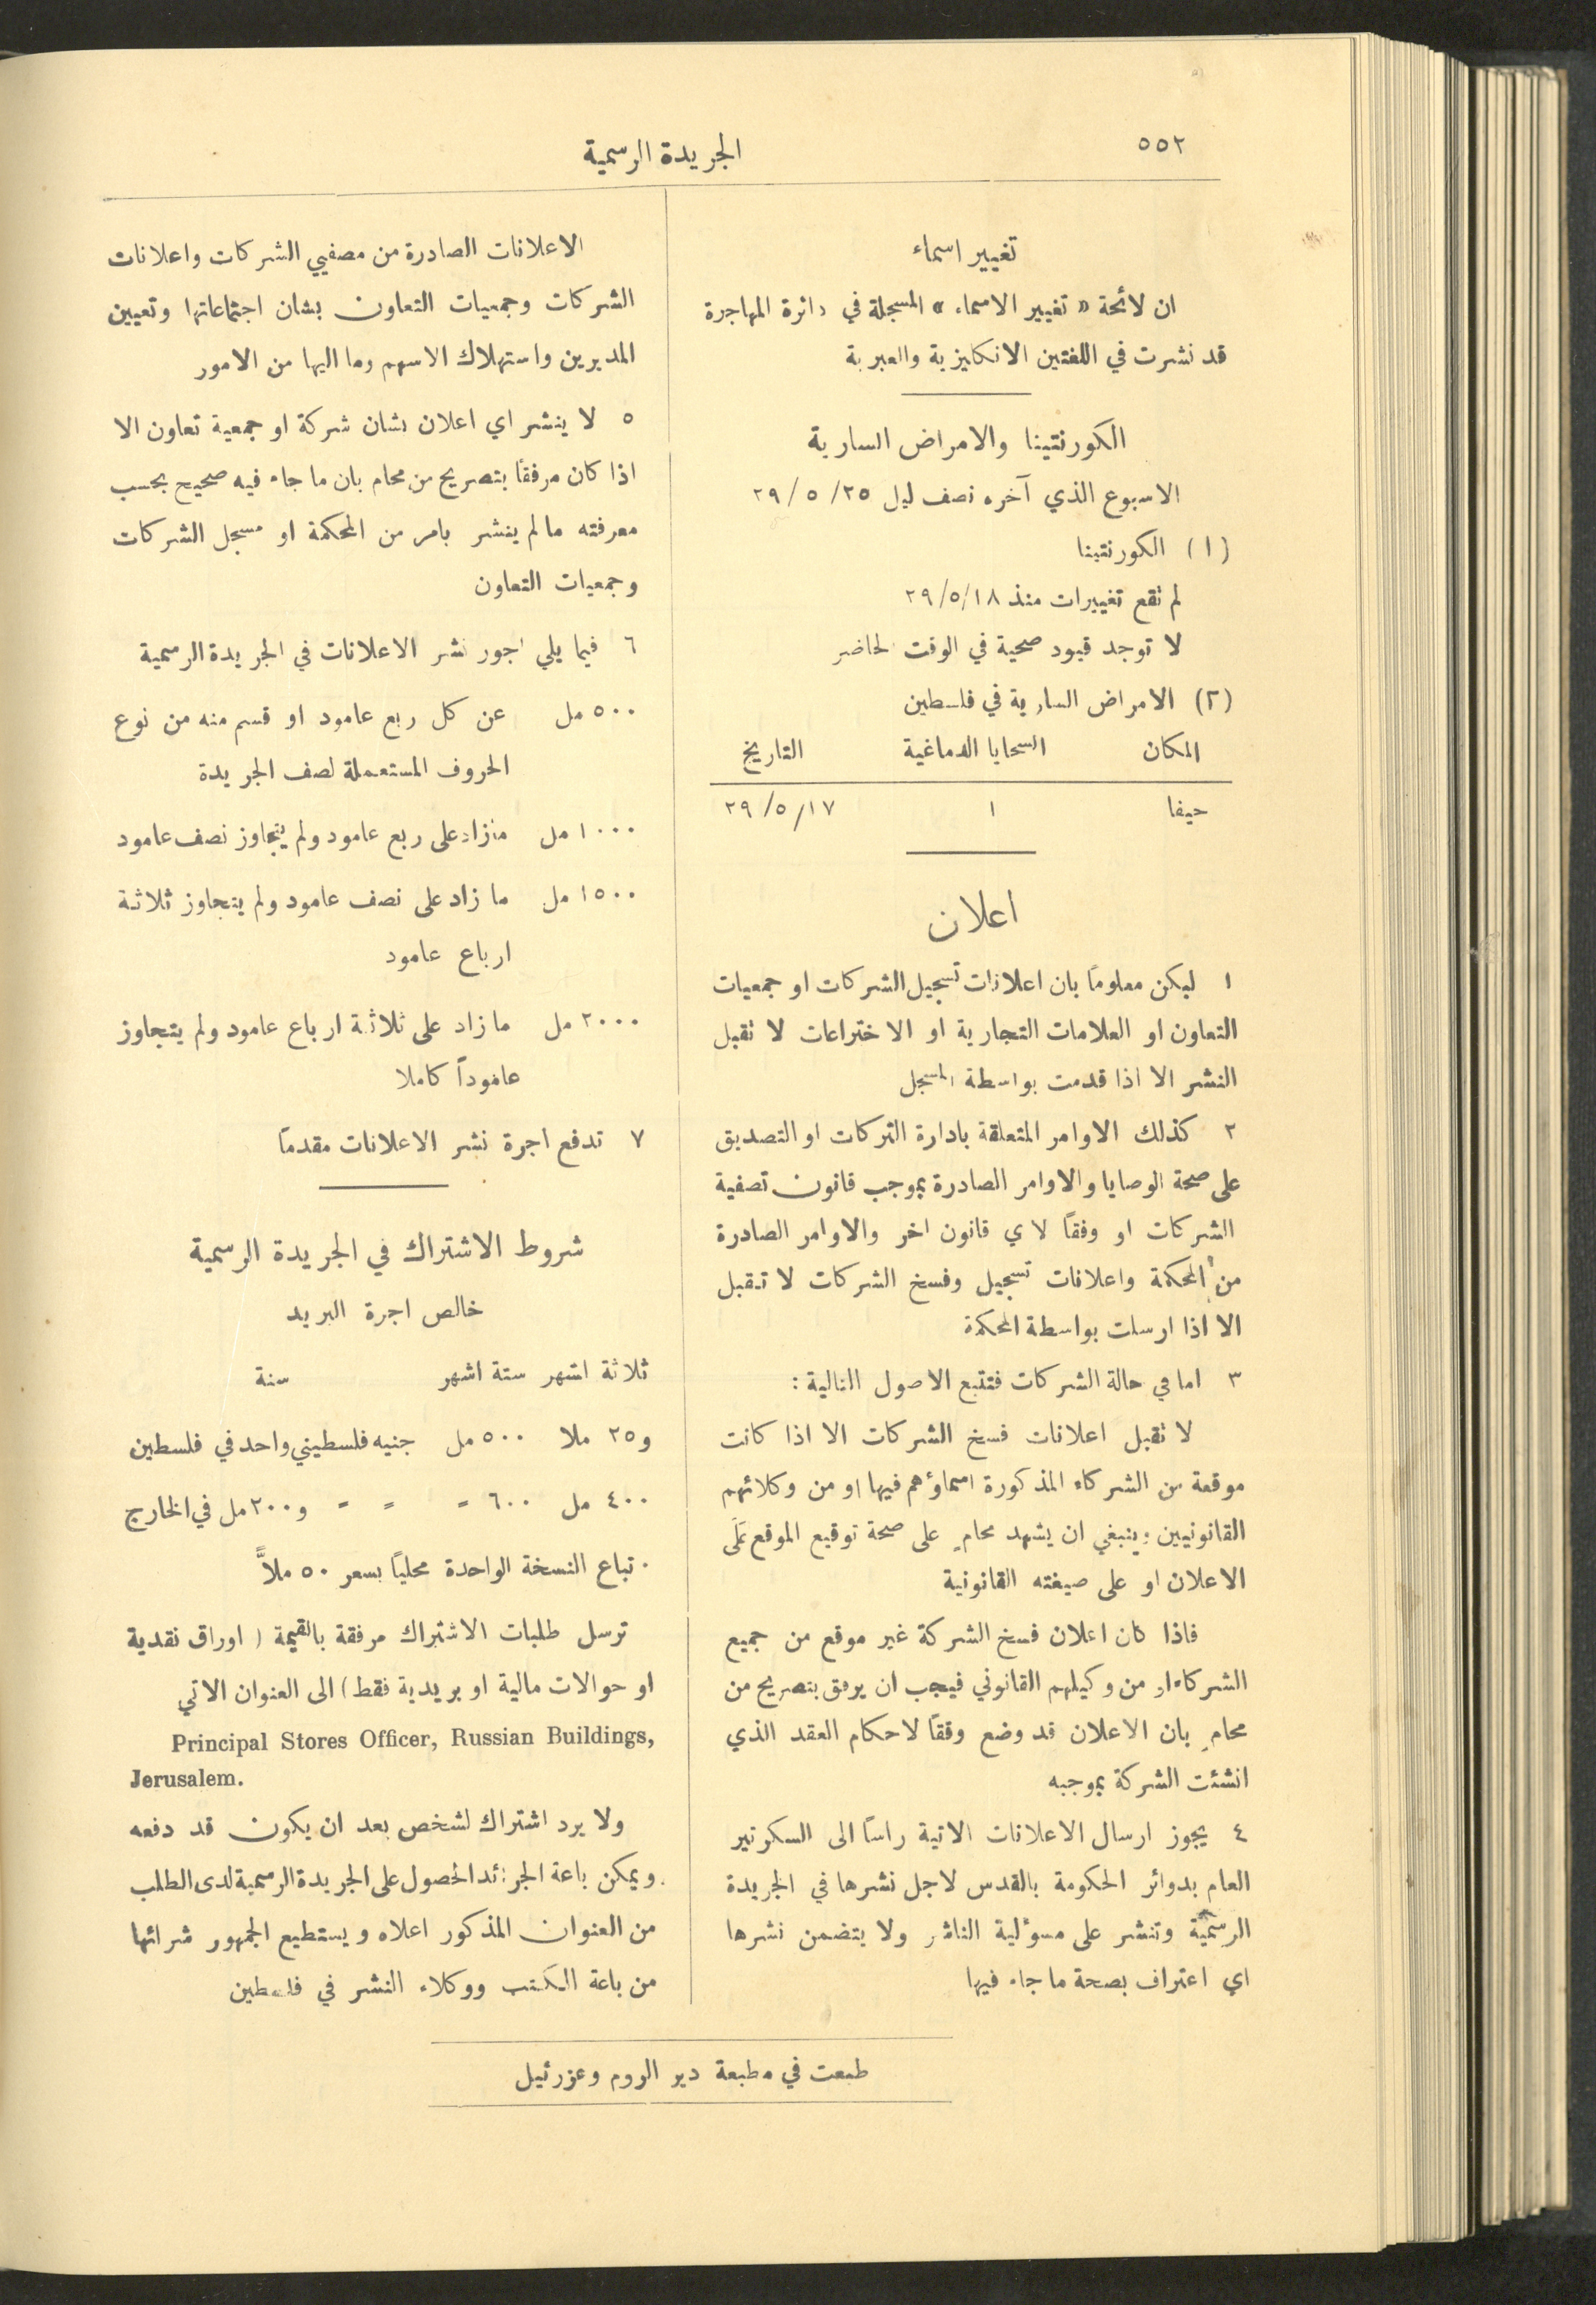 ٥٥٢
الجريدة الرسمية
تغيير اسماء
ان لائحة « تغيير الاسماء » المسجلة في دائرة المهاجرة
قد نشرت في اللغتين الانكليزية والعبرية
الكورنتينا والامراض السارية
الاسبوع الذي آخره نصف ليل ٢٥/٥/٢٩
(١) الكورنتينا
لم تقع تغييرات منذ ١٨/٥/٢٩
لا توجد قيود صحية في الوقت الحاضر
(٢) الامراض السارية في فلسطين
المكان السحايا الدماغية التاريخ
حيفا ١ ١٧/٥/٢٩
اعلان
١ ليكن معلوماً بان اعلانات تسجيل الشركات او جمعيات
التعاون او العلامات التجارية او الاختراعات لا تقبل
النشر الا اذا قدمت بواسطة المسجل
٢ كذلك الاوامر المتعلقة بادارة التركات او التصديق
على صحة الوصايا والاوامر الصادرة بموجب قانون تصفية
الشركات او وفقاً لاي قانون اخر والاوامر الصادرة
من المحكمة واعلانات تسجيل وفسخ الشركات لا تقبل
الا اذا ارسلت بواسطة المحكمة
٣ اما في حالة الشركات فتتبع الاصول التالية :
لا تقبل اعلانات فسخ الشركات الا اذا كانت
موقعة من الشركاء المذكورة اسماؤهم فيها او من وكلائهم
القانونيين وينبغي ان يشهد محامٍ على صحة توقيع الموقع عَلَى
الاعلان او على صيغته القانونية
فاذا كان اعلان فسخ الشركة غير موقع من جميع
الشركاء او من وكيلهم القانوني فيجب ان يرفق بتصريح من
محامٍ بان الاعلان قد وضع وفقاً لاحكام العقد الذي
انشئت الشركة بموجبه
٤ يجوز ارسال الاعلانات الاتية راساً الى السكرتير
العام بدوائر الحكومة بالقدس لاجل نشرها في الجريدة
الرسمية وتنشر على مسؤلية الناشر ولا يتضمن نشرها
اي اعتراف بصحة ما جاء فيها
الاعلانات الصادرة من مصفيي الشركات واعلانات
الشركات وجمعيات التعاون بشان اجتماعاتها وتعيين
المديرين واستهلاك الاسهم وما اليها من الامور
٥ لا ينشر اي اعلان بشان شركة او جمعية تعاون الا
اذا كان مرفقاً بتصريح من محام بان ما جاء فيه صحيح بحسب
معرفته ما لم ينشر بامر من المحكمة او مسجل الشركات
وجمعيات التعاون
٦ فيما يلي اجور نشر الاعلانات في الجريدة الرسمية
٥٠٠ مل عن كل ربع عامود او قسم منه من نوع
الحروف المستعملة لصف الجريدة
١٠٠٠ مل ما زاد على ربع عامود ولم يتجاوز نصف عامود
١٥٠٠ مل ما زاد على نصف عامود ولم يتجاوز ثلاثة
ارباع عامود
٢٠٠٠ مل ما زاد على ثلاثة ارباع عامود ولم يتجاوز
عاموداً كاملا
٧ تدفع اجرة نشر الاعلانات مقدماً
شروط الاشتراك في الجريدة الرسمية
خالص اجرة البريد
ثلاثة اشهر ستة اشهر سنة
و٢٥ ملا ٥٠٠ مل جنيه فلسطيني واحد في فلسطين
٤٠٠ مل ٦٠٠ = = = و٢٠٠ مل في الخارج
تباع النسخة الواحدة محلياً بسعر ٥٠ ملاًّ
ترسل طلبات الاشتراك مرفقة بالقيمة ( اوراق نقدية
او حوالات مالية او بريدية فقط ) الى العنوان الاتي
Principal Stores Officer, Russian Buildings,
Jerusalem.
ولا يرد اشتراك لشخص بعد ان يكون قد دفعه
ويمكن باعة الجرائد الحصول على الجريدة الرسمية لدى الطلب
من العنوان المذكور اعلاه ويستطيع الجمهور شرائها
من باعة الكتب ووكلاء النشر في فلسطين
طبعت في مطبعة دير الروم وعزرئيل